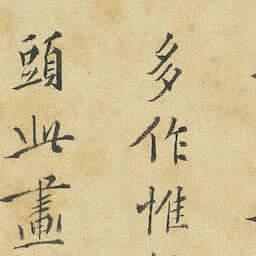 多作惟
頭此畫